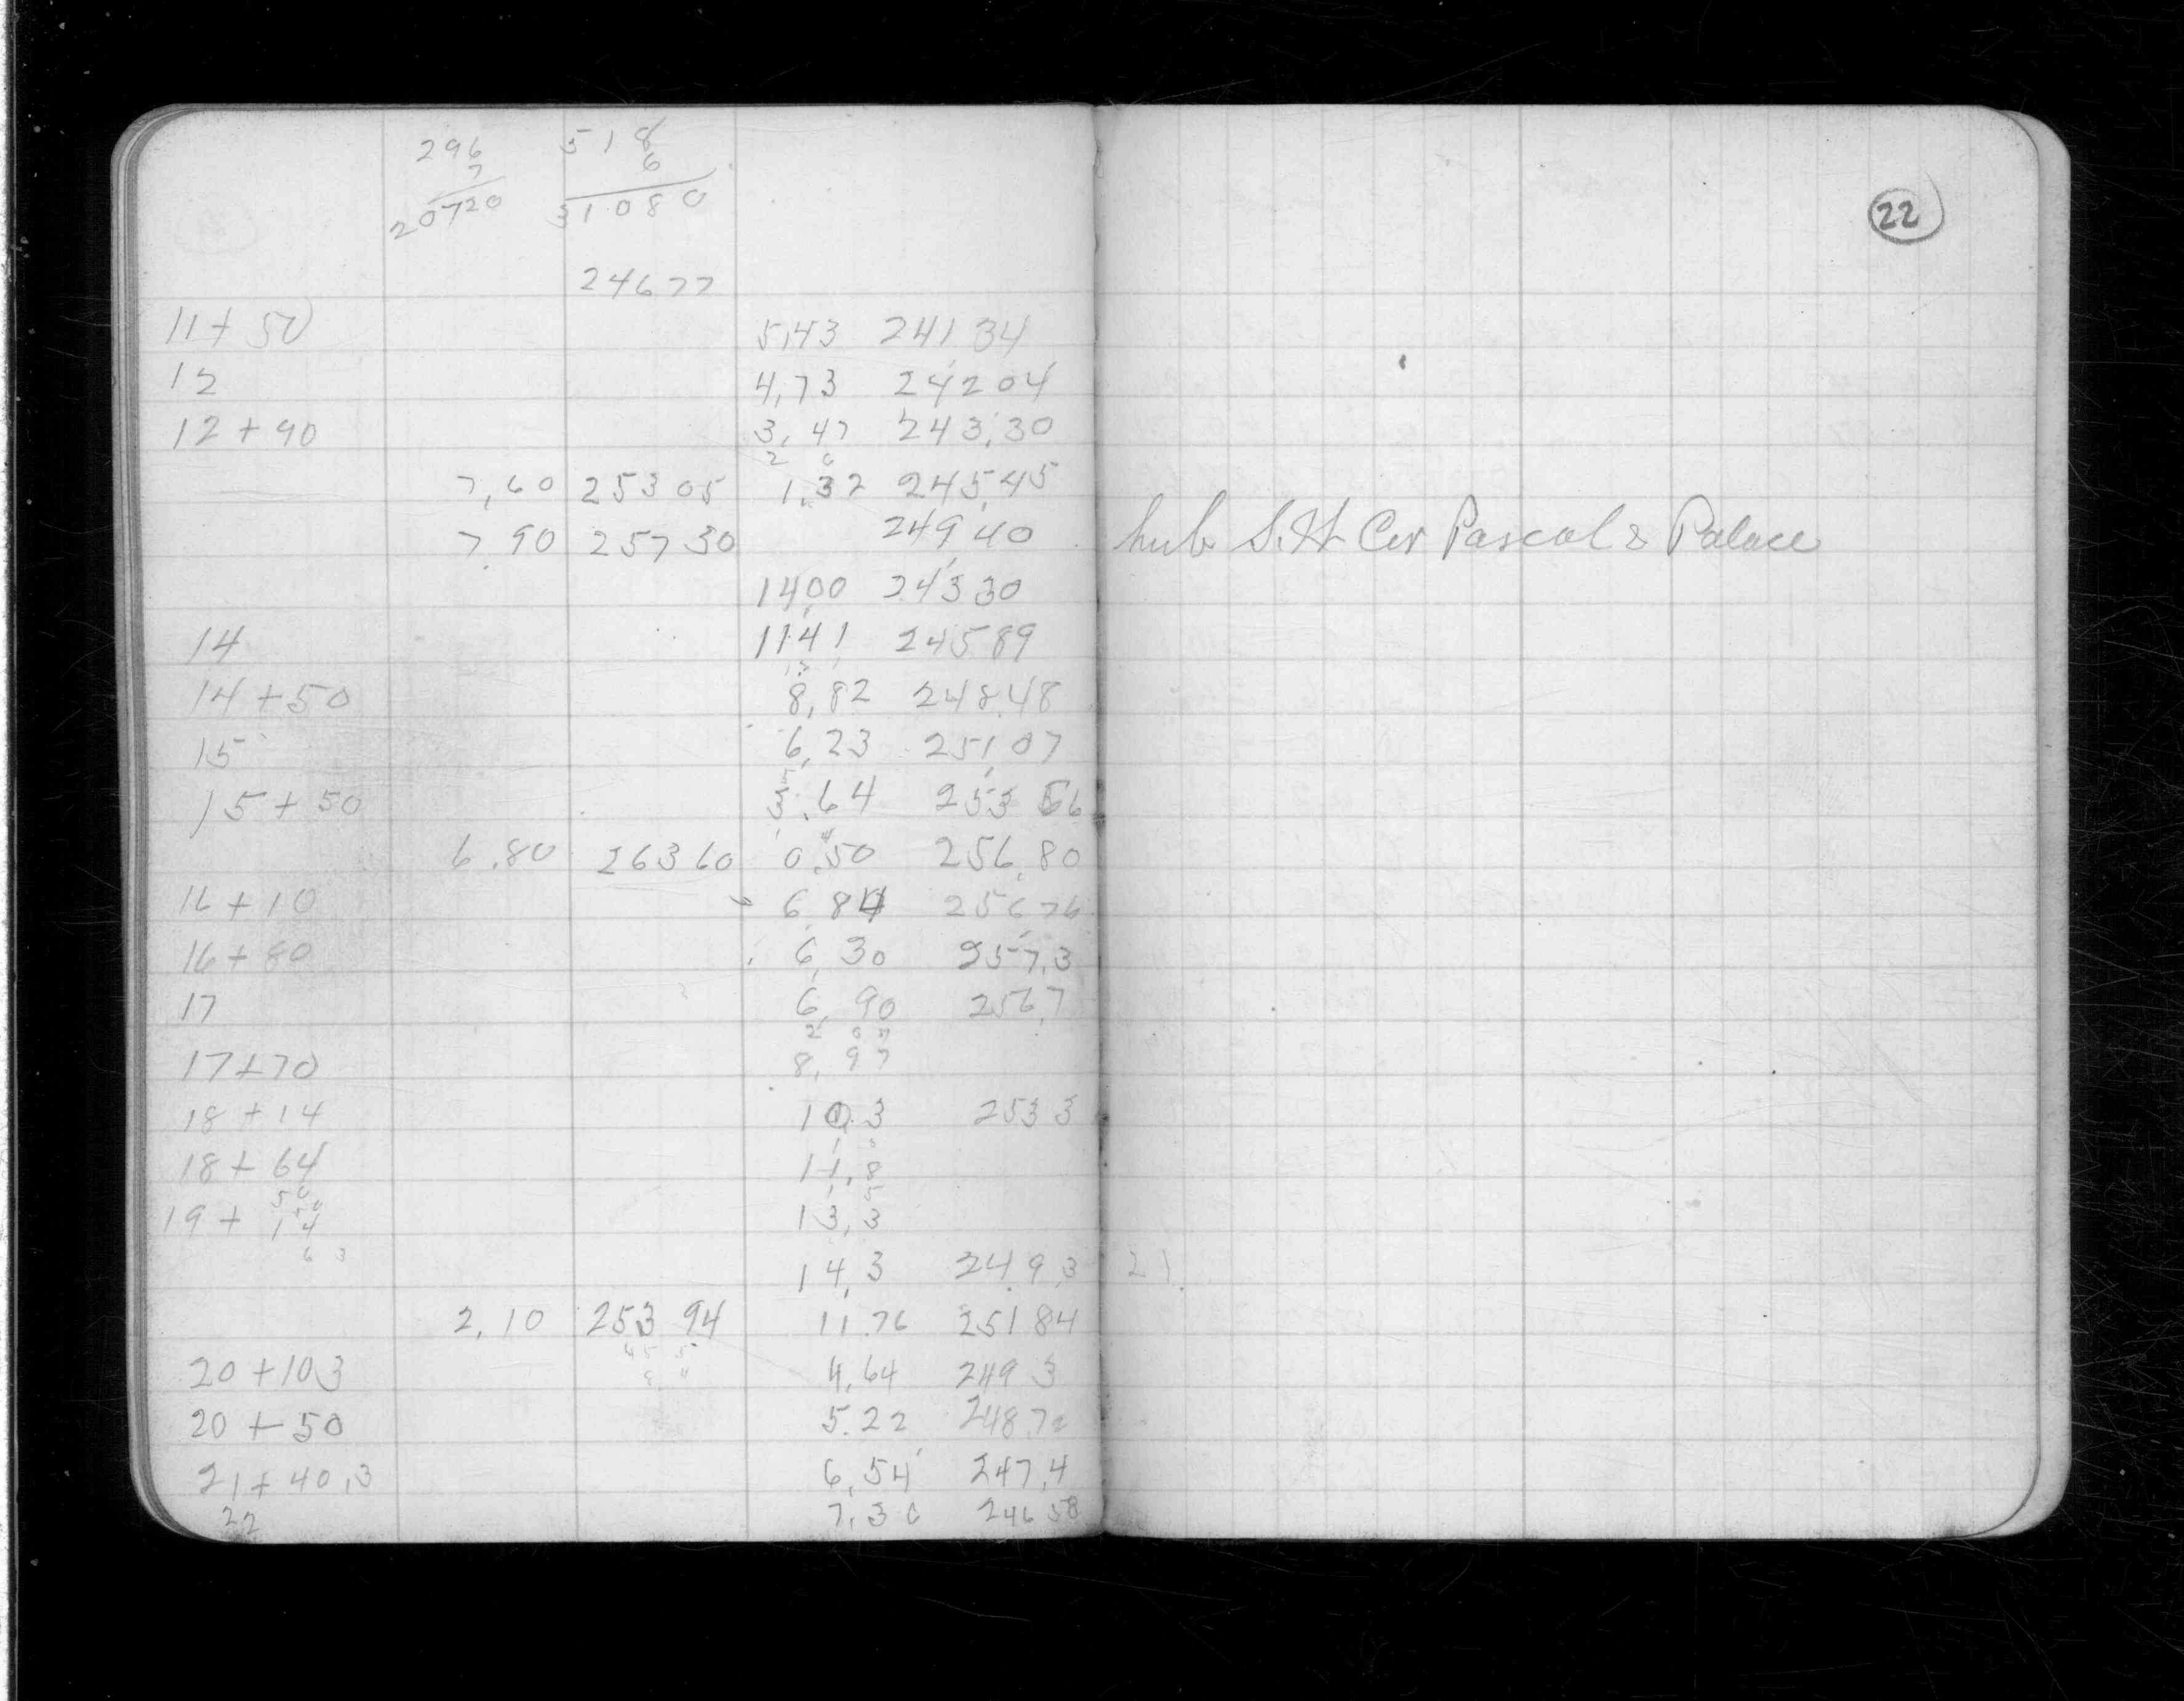 296 518
7 6
20720 31080
22
24677
11+50 5,43 241 34
12 4,73 242 04
12+90 3,47 243,30
2 6
7,60 253 05 1,32 245,45
7 90 257 30 249 40 hub S.H Cor Pascal & Palace
1400 243 30
14 11 41 245 89
14+50 8,82 248.48
15 6,23 251,07
15+50 3.64 253 66
6.80 263 60 0.50 256.80
16+10 6 84 256 76
16+80 6,30 257,3
17 6,90 256,7
2 0 7
17+70 8,97
18+14 10.3 253 3
18+64 11.8
50
19+14 13,3
6 3
14,3 249,3 21.
2,10 253 94 11.76 251 84
20+103 4,64 249 3
20+50 5.22 248.72
21+40,3 6,54 247.4
22 7,36 246 58